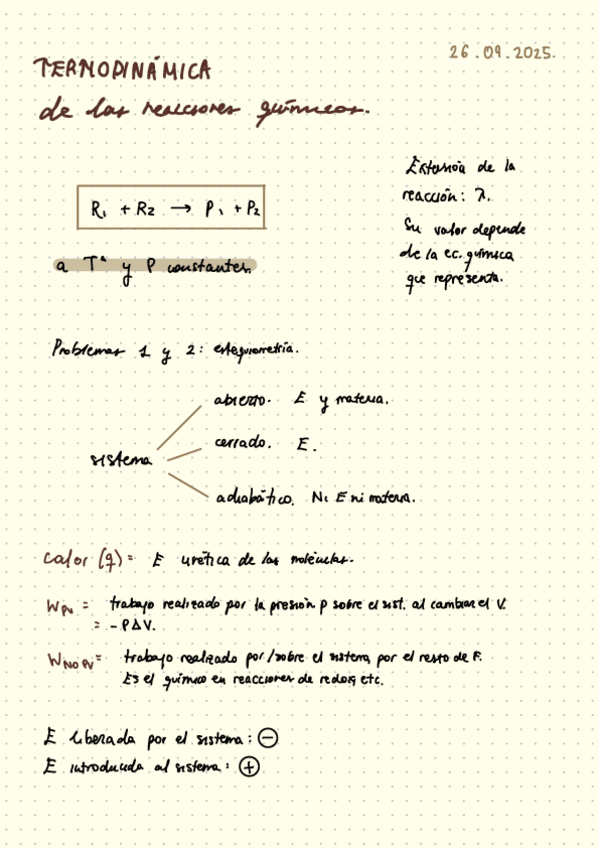 26.09.2025.
TERMODINÁMICA
de las reacciones químicas.
R1 + R2 → P1 + P2
a Tª y P constantes.
Extensión de la
reacción: λ.
Su valor depende
de la ec. química
que representa.
Problemas 1 y 2: estequiometría.
sistema
abierto. E y materia.
cerrado. E.
adiabático. Ni E ni materia.
calor (q) = E cinética de las moléculas.
WPV = trabajo realizado por la presión p sobre el sist. al cambiar el V.
= -PΔV.
WNO PV = trabajo realizado por/sobre el sistema, por el resto de F.
Es el químico en reacciones de redox, etc.
E liberada por el sistema: ⊖
E introducida al sistema: ⊕